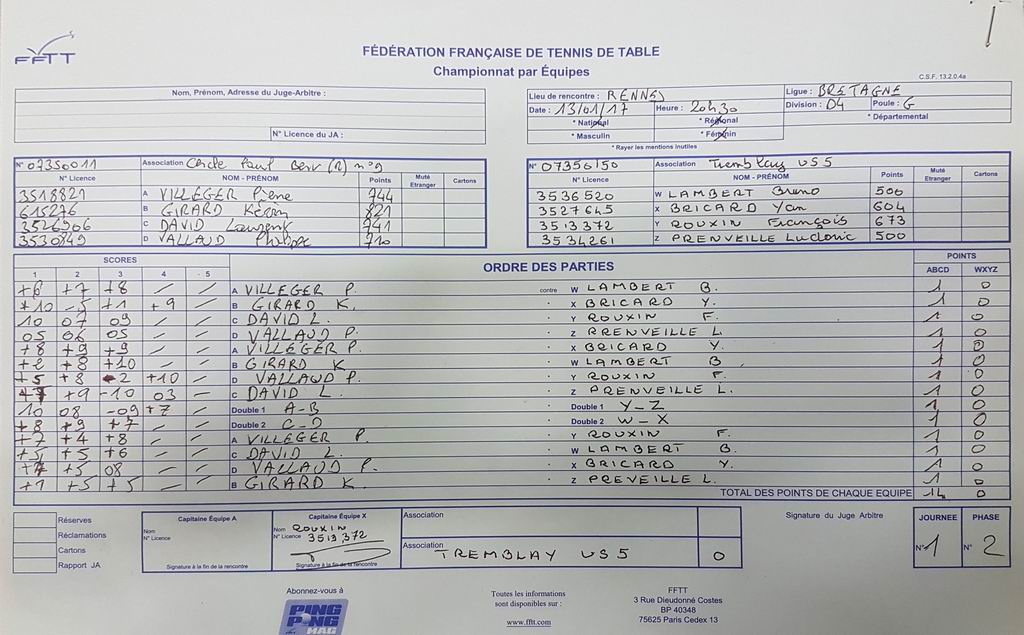 FFTT
FÉDÉRATION FRANÇAISE DE TENNIS DE TABLE
Championnat par Équipes
C.S.F. 13.2.0.4a
Nom, Prénom, Adresse du Juge-Arbitre :
N° Licence du JA :
Lieu de rencontre : RENNES
Date : 13/01/17 Heure : 20h30
* National * Régional
* Masculin * Féminin
* Rayer les mentions inutiles
Ligue : BRETAGNE
Division : D4 Poule : G
* Départemental
N° 07350011 Association Cercle Paul Bert (R) n°9
N° Licence NOM - PRÉNOM Points Muté Etranger Cartons
3518829 A VILLEGER Pierre 744
615276 B GIRARD Kévin 821
3526906 C DAVID Laurent 741
3530849 D VALLAUD Philippe 710
N° 07350150 Association Tremblay US5
N° Licence NOM - PRÉNOM Points Muté Etranger Cartons
3536520 W LAMBERT Bruno 500
3527645 X BRICARD Yan 604
3513372 Y ROUXIN François 673
3534261 Z PRENVEILLE Ludovic 500
SCORES ORDRE DES PARTIES POINTS
1 2 3 4 5 ABCD WXYZ
+6 +7 +8 / / A VILLEGER P. contre W LAMBERT B. 1 0
+10 -5 +1 +9 / B GIRARD K. X BRICARD Y. 1 0
10 07 09 / / C DAVID L. Y ROUXIN F. 1 0
05 06 05 / / D VALLAUD P. Z PRENVEILLE L. 1 0
+8 +9 +9 / / A VILLEGER P. X BRICARD Y. 1 0
+2 +8 +10 / / B GIRARD K W LAMBERT B 1 0
+5 +8 -2 +10 / D VALLAUD P. Y ROUXIN F. 1 0
+9 -10 03 / C DAVID L. Z PRENVEILLE L. 1 0
10 08 -09 +7 / Double 1 A-B Double 1 Y-Z 1 0
+8 +9 +7 / / Double 2 C-D Double 2 W-X 1 0
+7 +4 +8 / / A VILLEGER P. Y ROUXIN F. 1 0
+5 +5 +6 / / C DAVID L. W LAMBERT B. 1 0
+5 08 / / D VALLAUD P. X BRICARD Y. 1 0
+1 +5 +5 / / B GIRARD K. Z PREVEILLE L. 1 0
TOTAL DES POINTS DE CHAQUE EQUIPE 14 0
Réserves
Réclamations
Cartons
Rapport JA
Capitaine Équipe A
Nom
N° Licence
Signature à la fin de la rencontre
Capitaine Équipe X
Nom ROUXIN
N° Licence 3513372
Signature à la fin de la rencontre
Association
Association TREMBLAY US5 0
Signature du Juge Arbitre
JOURNEE PHASE
N° 1 N° 2
Abonnez-vous à
PING PONG MAG
Toutes les informations
sont disponibles sur :
www.fftt.com
FFTT
3 Rue Dieudonné Costes
BP 40348
75625 Paris Cedex 13